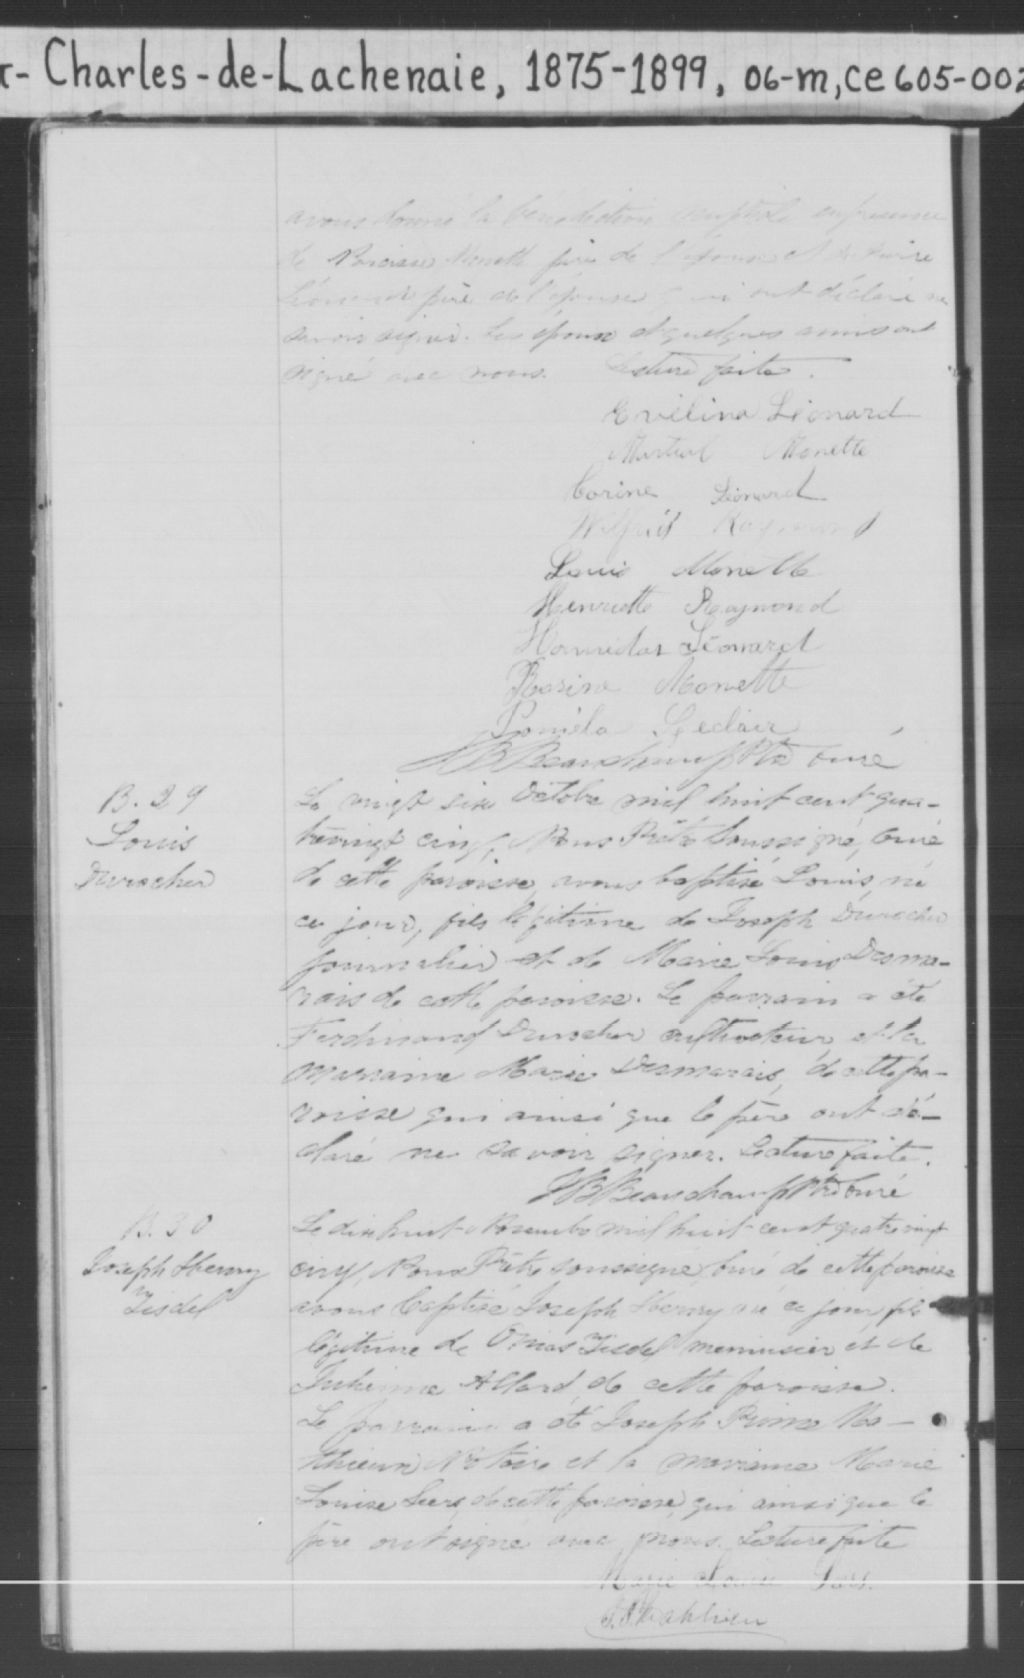 - Charles-de-Lachenaie, 1875-1899, 06-m, ce605-002
avons donné la bénédiction nuptiale en présence
de Monette père de l'époux et de
père de l'épouse qui ont déclaré ne
savoir signer. Les époux et quelques amis ont
signé avec nous. Lecture faite.
Evelina Léonard
Martial Monette
Corine Léonard
Wilfrid Raymond
Louis Monette
Henriette Raymond
Hormidas Léonard
Rosina Monette
Paméla Leclair
J B Beauchamp Ptre Curé
B. 29
Louis
Durocher
Le vingt six Octobre mil huit cent qua-
trevingt cinq, Nous Prêtre Soussigné, Curé
de cette paroisse, avons baptisé Louis, né
ce jour, fils légitime de Joseph Durocher
journalier et de Marie Louise Desma-
rais de cette paroisse. Le parrain a été
Ferdinand Durocher cultivateur et la
marraine Marie Desmarais, de cette pa-
roisse qui ainsi que le père ont dé-
claré ne savoir signer. Lecture faite.
J B Beauchamp Ptre Curé
B. 30
Joseph Henry
Tisdel
Le dix huit Novembre mil huit cent quatre vingt
cinq, Nous Prêtre soussigné, curé de cette paroisse
avons baptisé Joseph Henry né ce jour, fils
légitime de Onias Tisdel menuisier et de
Allard de cette paroisse.
Le parrain a été Joseph Prime Ma-
thieu Notaire et la marraine Marie
Louise de cette paroisse, qui ainsi que le
père ont signé avec nous. Lecture faite
Marie Louise
J. P. Mathieu